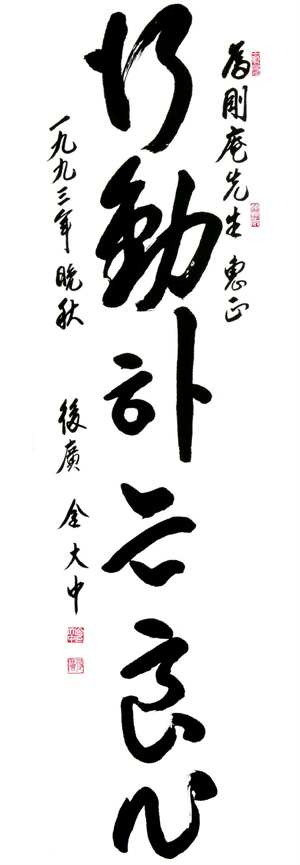 為剛庵先生 惠正
行動하는良心
一九九三年 晚秋 後廣 金大中